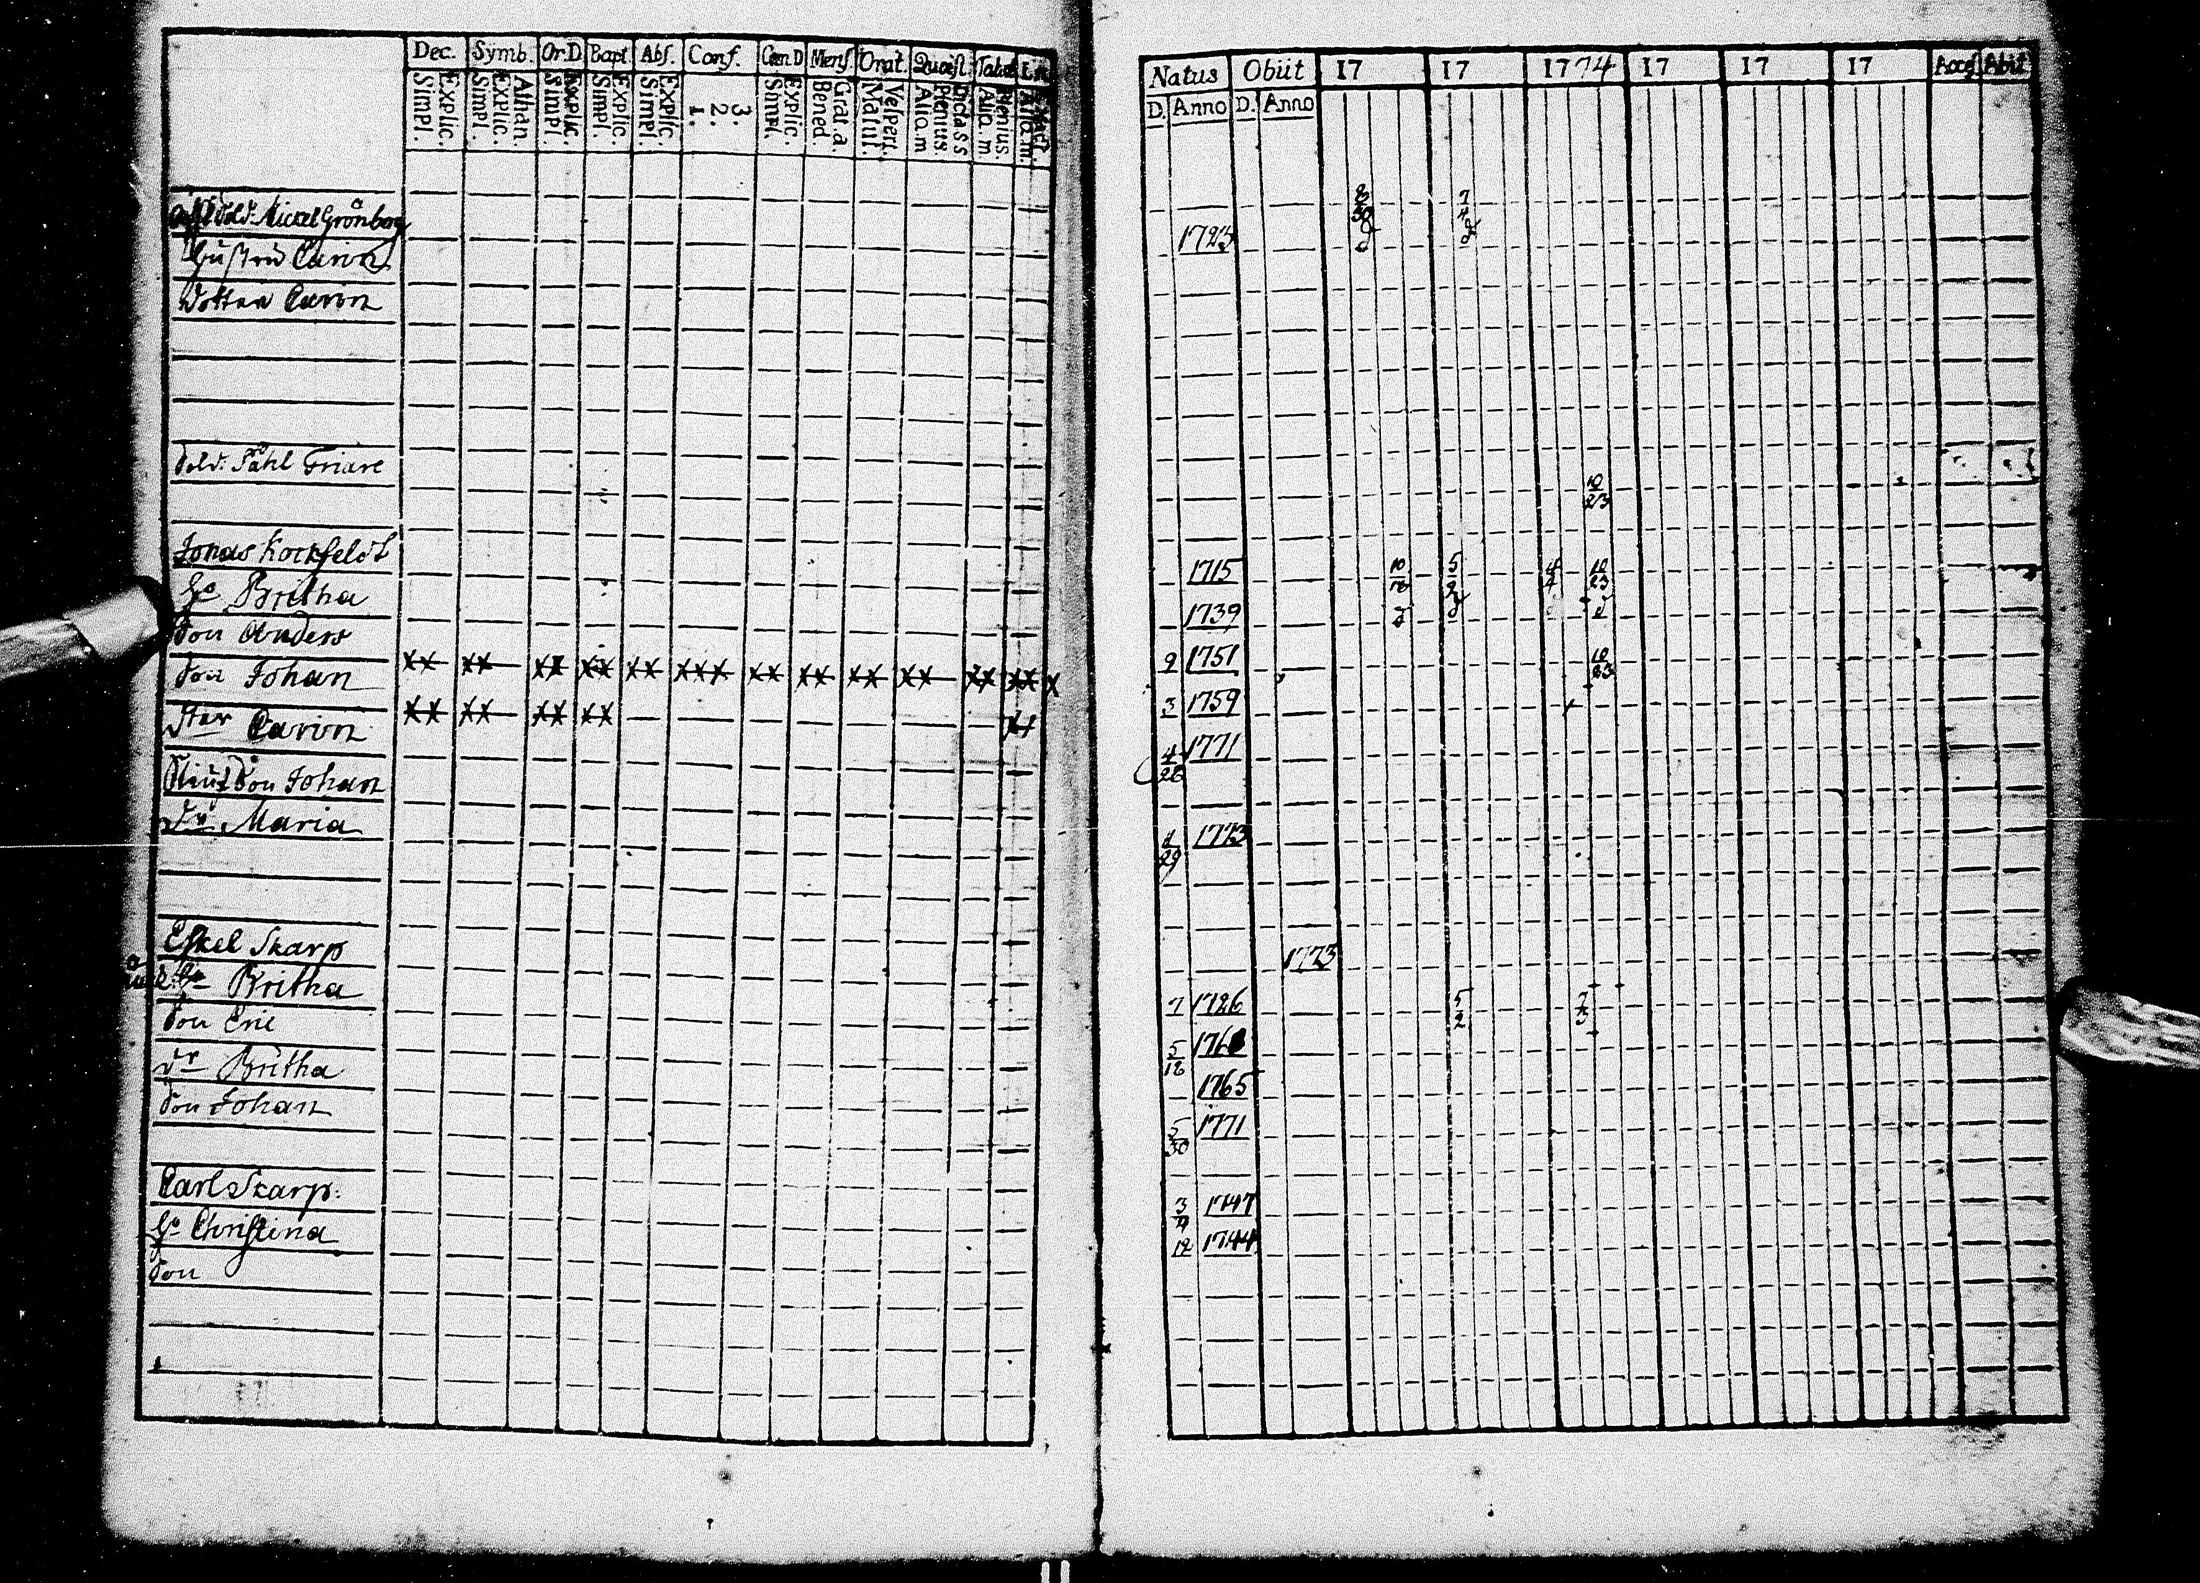 Dec. Symb. Or.D Bapt. Abs. Conf. Cœn D Mens. Orat. Quæst. Tabul
Simpl. Explic. Simpl. Explic. Athan. Simpl. Explic. Simpl. Explic. Simpl. Explic. 1. 2. 3. Simpl. Explic. Bened. Grat. a. Matut. Vespert. Aliq. m Plenius. Dicta s s Aliq. m Plenius. Aliq. m.
Sold. Mickel Grönberg
Hustru Carin
Dotter Carin
Sold. Påhl Friare
Jonas Kockfeldt
Ho Britha
Son Anders
Son Johan
Carin
Son Johan
Maria
Eskel Skarp
Britha
Son Eric
Dr Britha
Son Johan
Carl Skarp:
Ho Christina
Son
Natus Obiit 17 17 1774 17 17 17 Acces Abiit
D. Anno D. Anno
7
4
1723
10
23
1715 10 5 4 10
18 2 4 23
1739
2 1751 10
23
3 1759
4 1771
26
1 1773
29
1773
7 1726 5 7
2 3
5 176
18
1765
5 1771
30
3 1747
4
12 1744